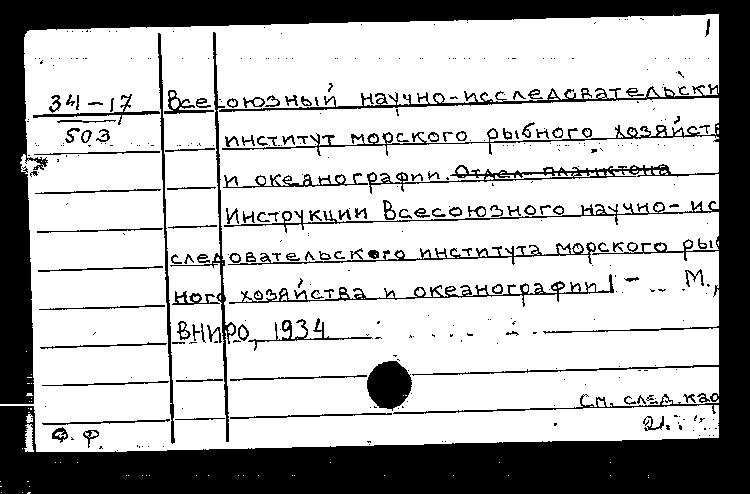 1
34-17 Всесоюзный научно-исследовательски
503 институт морского рыбного хозяйств
и океанографии. Отдел планктона
Инструкции Всесоюзного научно-ис
следовательского института морского рыб
ного хозяйства и океанографии 1 - М.,
ВНИРО, 1934
См. след. кар
21.
Ф. Ф.